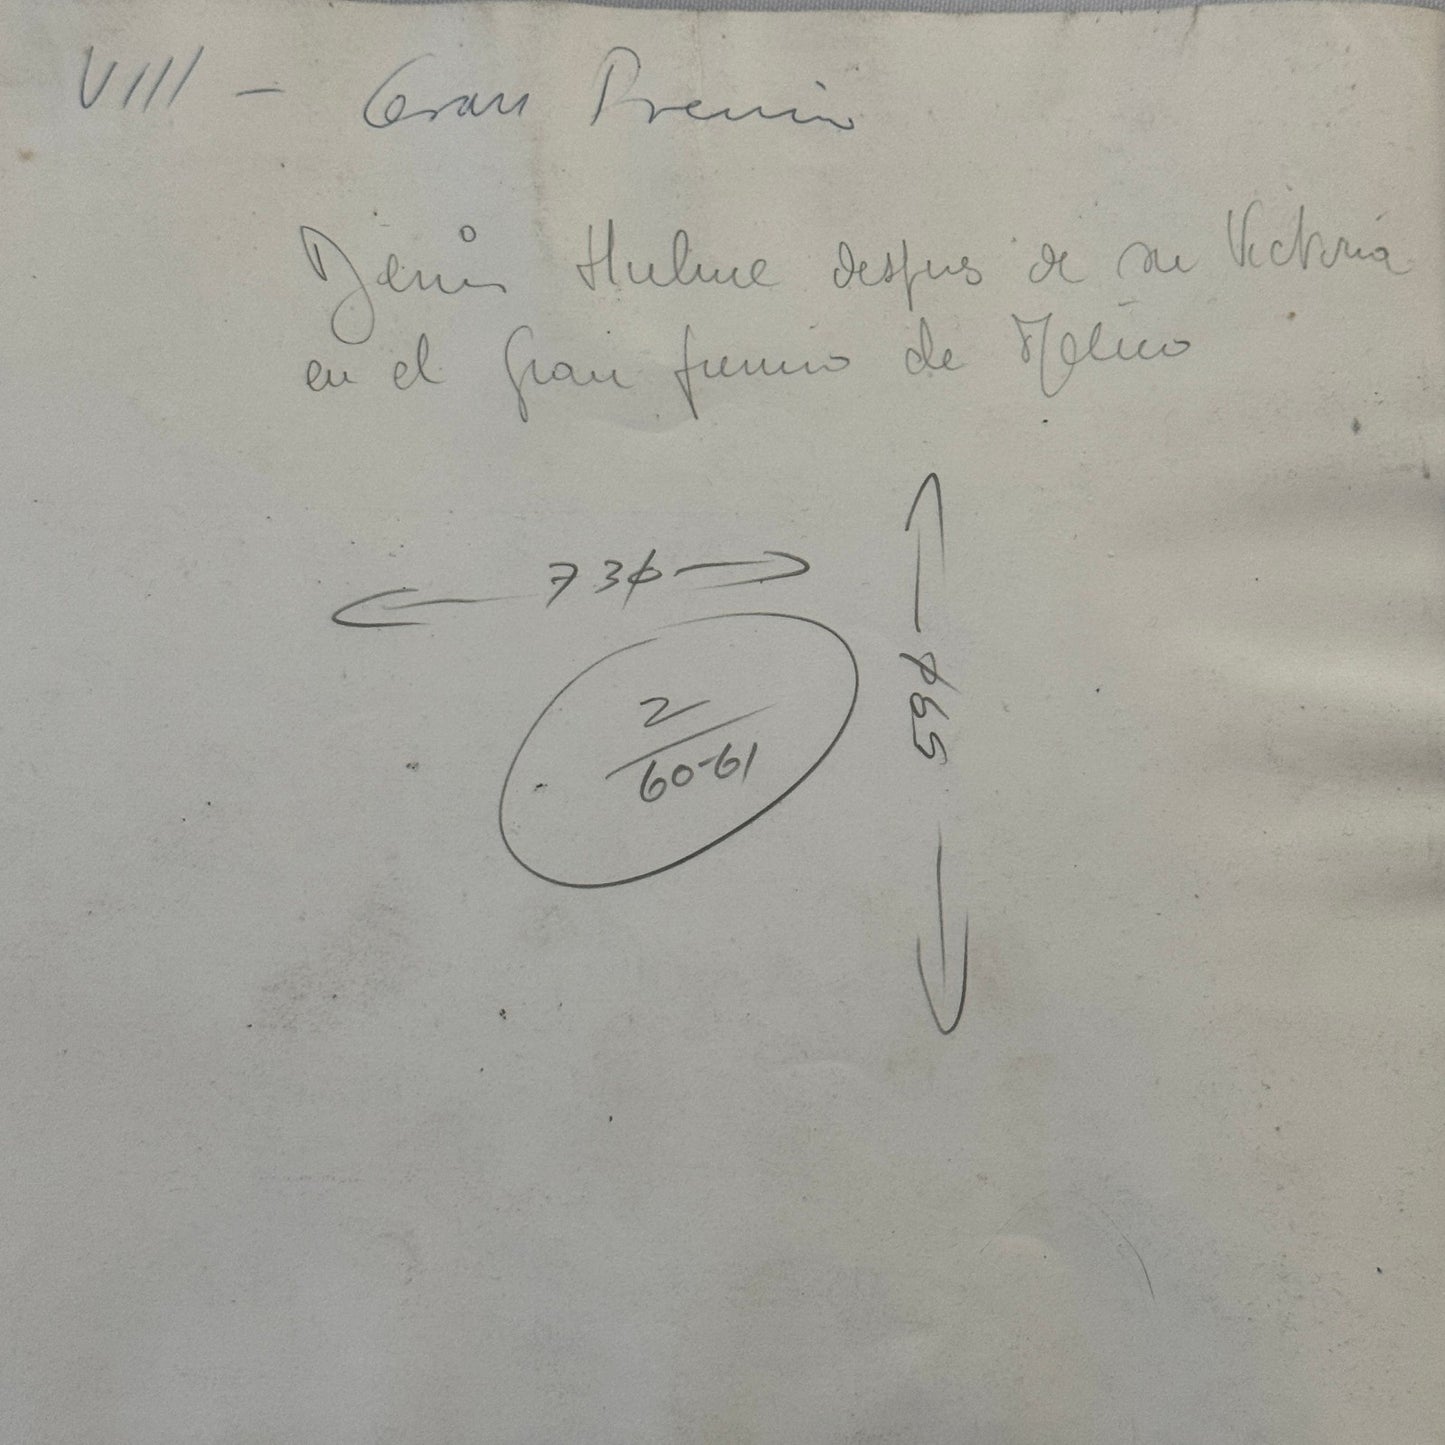 VIII - Gran Premio
Denis Hulme despues de su Victoria
en el gran premio de Mexico
730
590
2
60-61